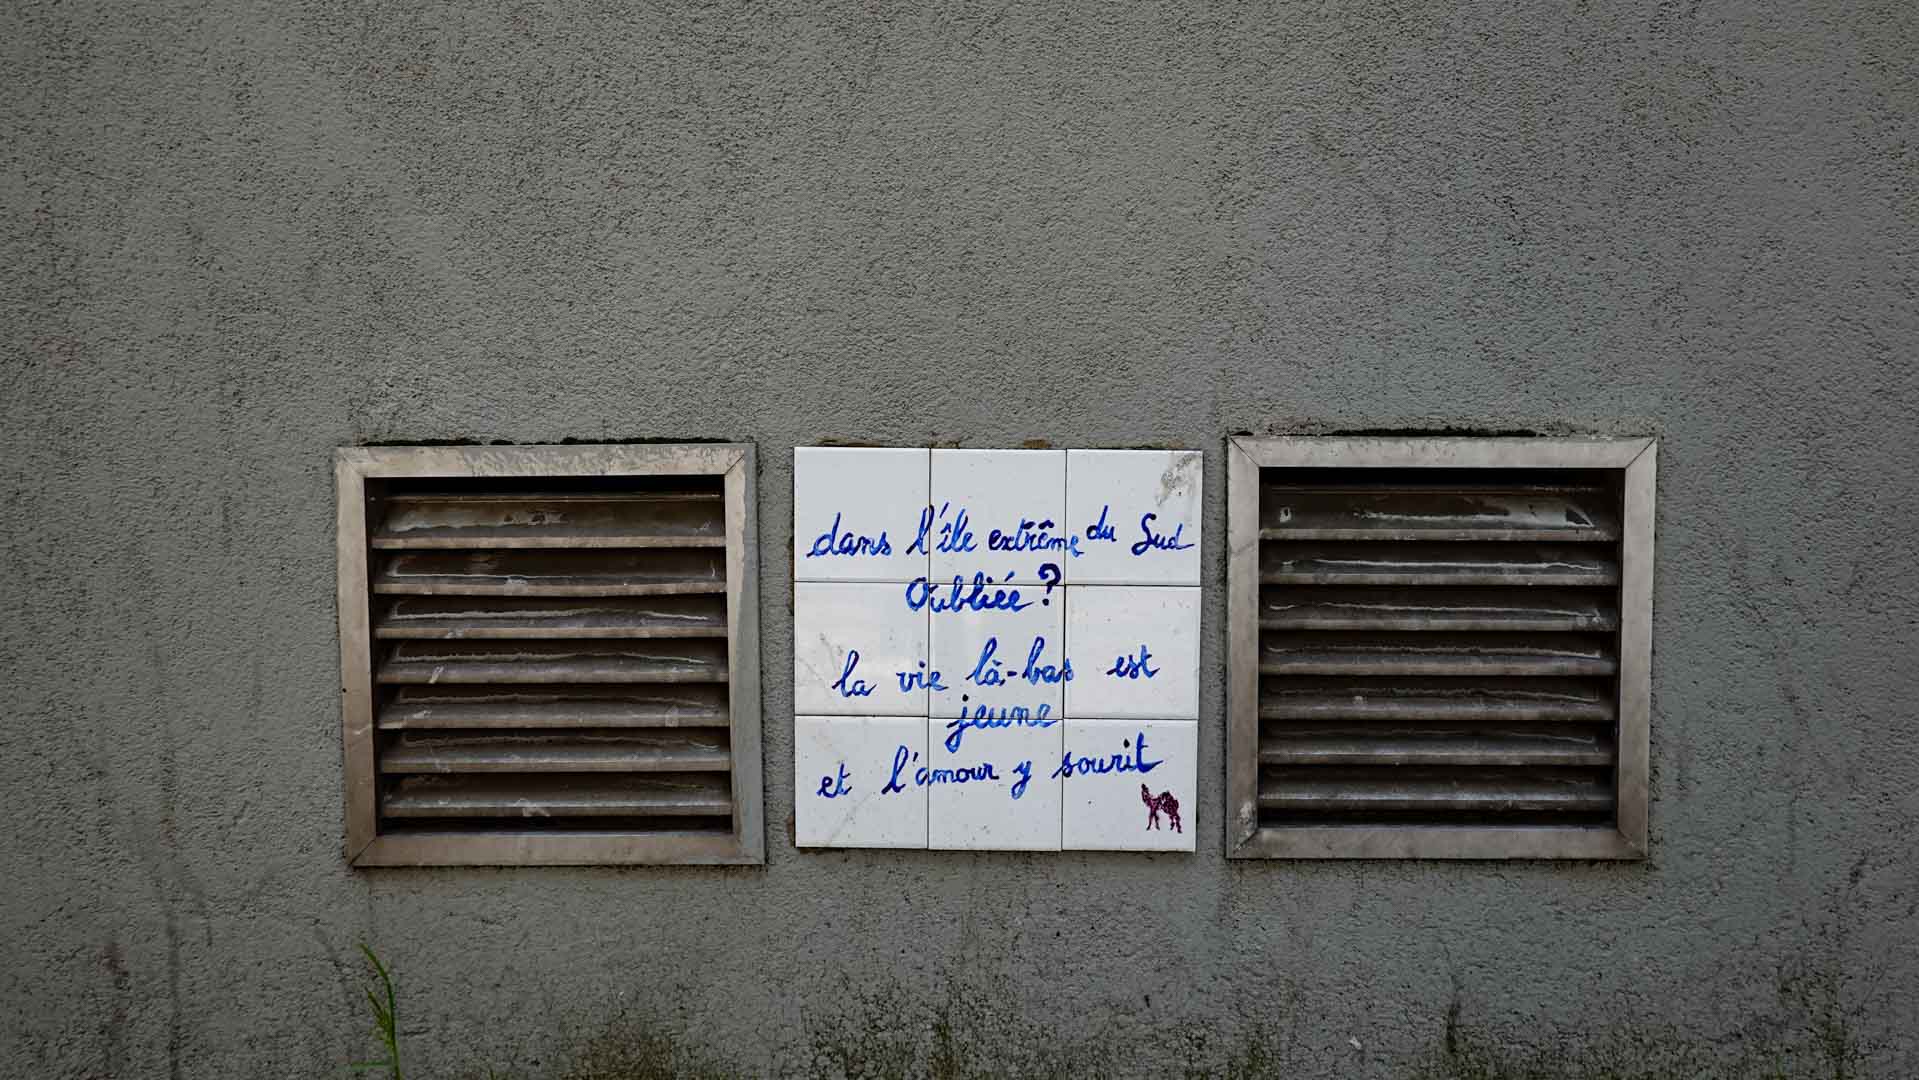 dans l'île extrême du Sud
Oubliée?
la vie là-bas est
jeune
et l'amour y sourit